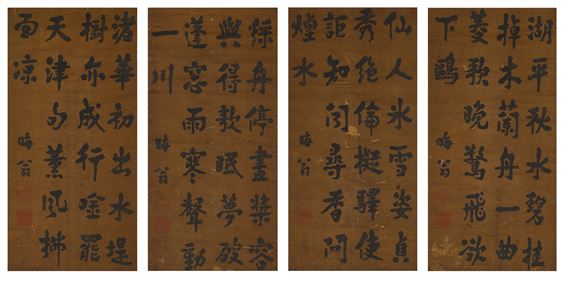 湖平秋水碧桂
棹木蘭舟一曲
菱歌晚驚飛欲
下鷗
晦翁
仙人冰雪姿貞
秀絕倫擬驛使
詎知聞尋香問
煙水
晦翁
綵舟停畫槳容
與得欹眠夢破
蓬窓雨寒聲動
一川
晦翁
渚華初出水堤
樹亦成行唫罷
天津句薰風拂
面凉
晦翁